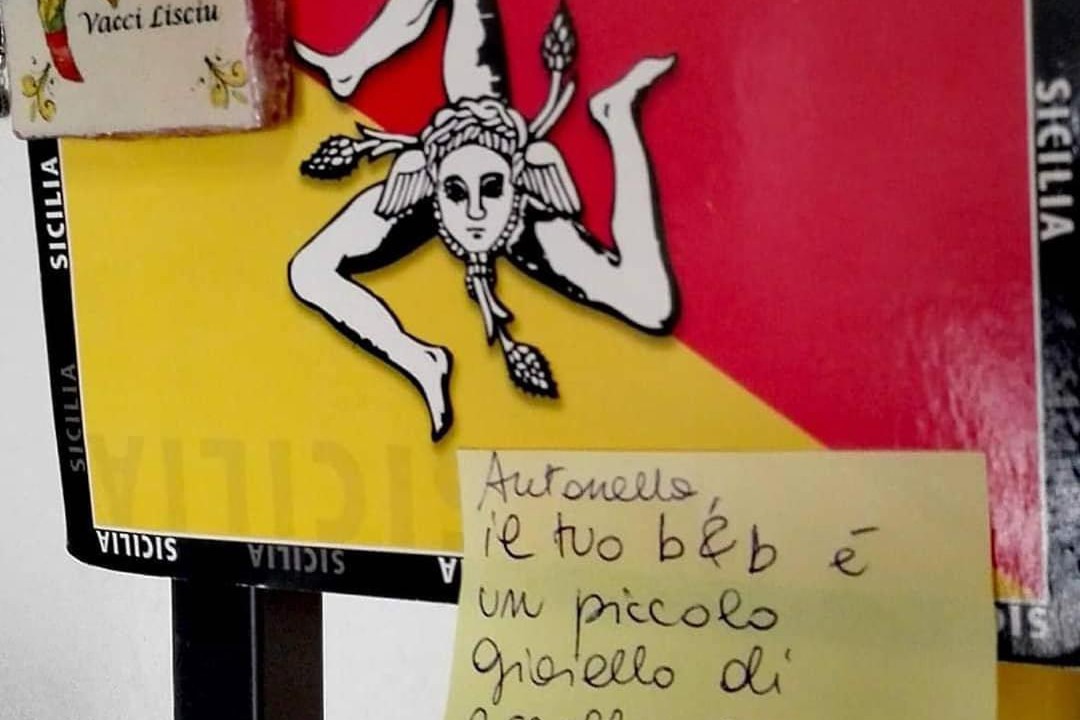 Vacci Lisciu
SICILIA
SICILIA
SICILIA
SICILIA
SICILIA
SICILIA
Antonello,
il tuo b&b é
un piccolo
gioiello di